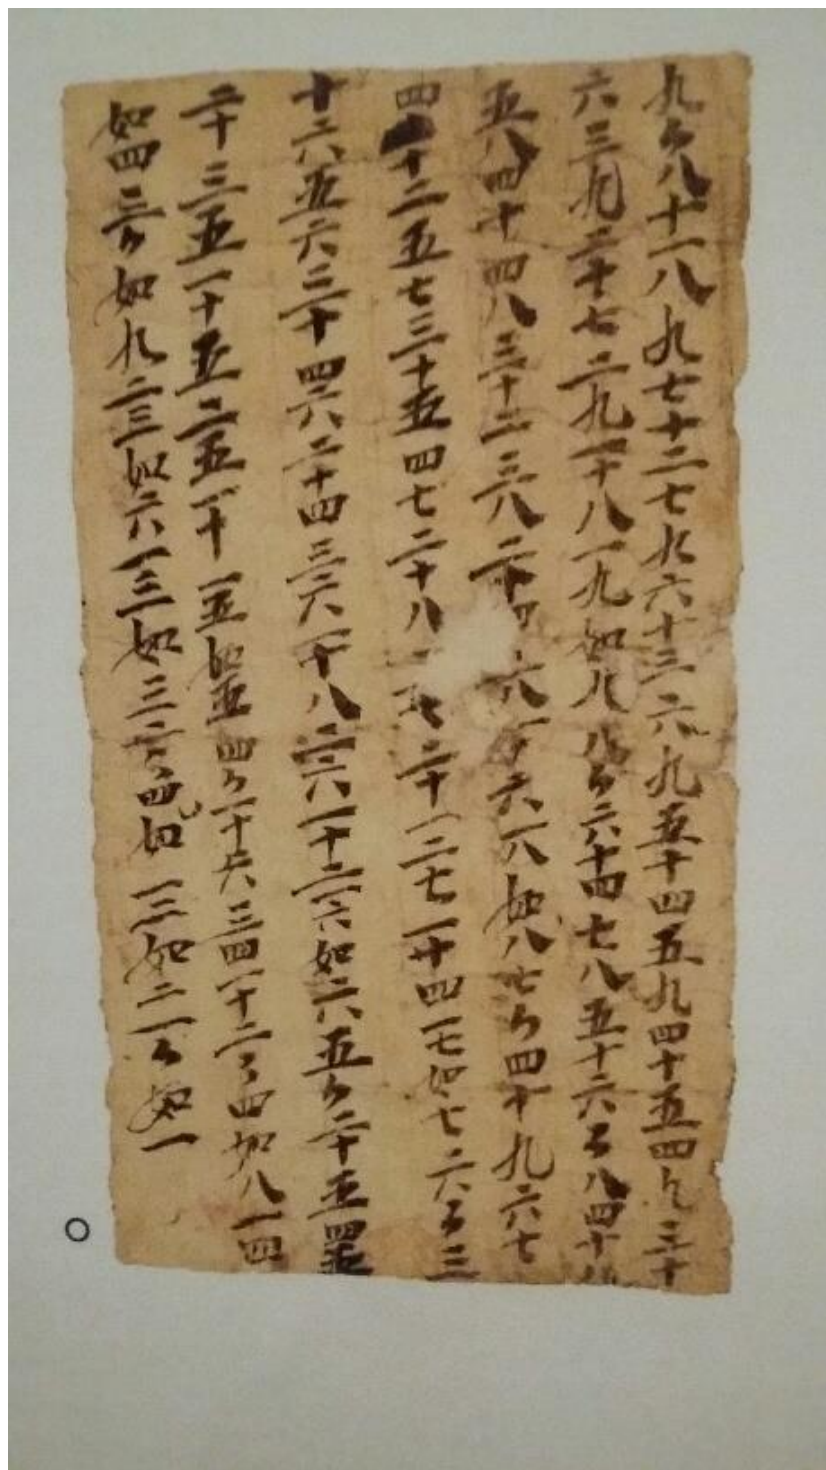 九々八十一八九七十二七九六十三六九五十四五九四十五四九三十
六三九二十七二九一十八一九如九八々六十四七八五十六六八四十八
五八四十四八三十二三八二十四二八一十六一八如八七々四十九六七
四十二五七三十五四七二十八三七二十一二七一十四一七如七六々三
十六五六三十四六二十四三六一十八二六一十二一六如六五々二十五四五
二十三五一十五二五一十一五如五四々一十六三四一十二二四如八一四
如四三々如九二三如六一三如三二々四如一二如二一々如一